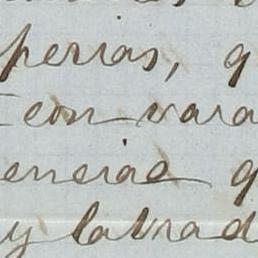 perias, q
con vara
encias q
y labrad